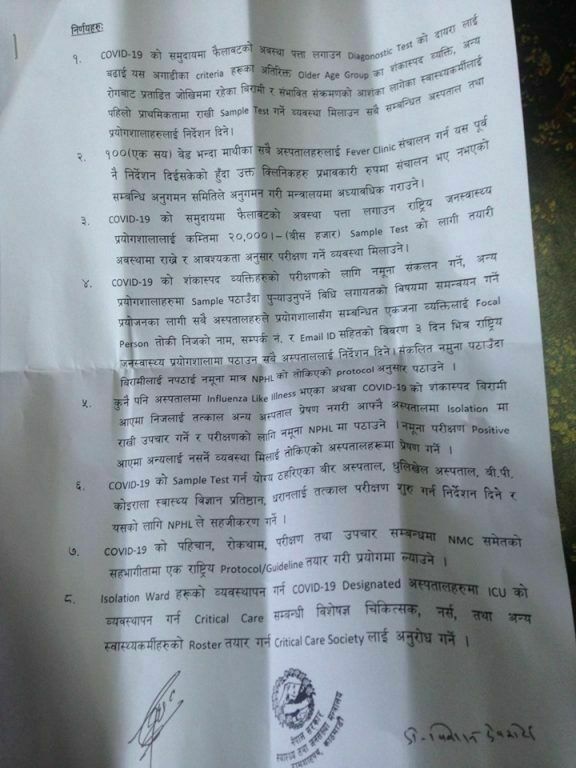 निर्णयहरुः
१. COVID-19 को समुदायमा फैलावटको अवस्था पत्ता लगाउन Diagonostic Test को दायरा लाई
बढाई यस अगाडीका criteria हरूका अतिरिक्त Older Age Group का शंकास्पद व्यक्ति, अन्य
रोगबाट प्रताडित जोखिममा रहेका बिरामी र संभावित संक्रमणको आशंका लागेका स्वास्थ्यकर्मीलाई
पहिलो प्राथमिकतामा राखी Sample Test गर्ने व्यवस्था मिलाउन सबै सम्बन्धित अस्पताल तथा
प्रयोगशालाहरुलाई निर्देशन दिने।
२. १००(एक सय) बेड भन्दा माथीका सबै अस्पतालहरुलाई Fever Clinic संचालन गर्न यस पूर्व
नै निर्देशन दिईसकेको हुँदा उक्त क्लिनिकहरु प्रभावकारी रुपमा संचालन भए नभएको
सम्बन्धि अनुगमन समितिले अनुगमन गरी मन्त्रालयमा अध्यावधिक गराउने।
३. COVID-19 को समुदायमा फैलावटको अवस्था पत्ता लगाउन राष्ट्रिय जनस्वास्थ्य
प्रयोगशालालाई कम्तिमा २०,०००।–(बीस हजार) Sample Test को लागी तयारी
अवस्थामा राख्ने र आवश्यकता अनुसार परीक्षण गर्ने व्यवस्था मिलाउने।
४. COVID-19 को शंकास्पद व्यक्तिहरुको परीक्षणको लागि नमूना संकलन गर्ने, अन्य
प्रयोगशालाहरुमा Sample पठाउँदा पुर्‍याउनुपर्ने विधि लगायतको विषयमा समन्वयन गर्ने
प्रयोजनका लागी सबै अस्पतालहरुले प्रयोगशालासँग सम्बन्धित एकजना व्यक्तिलाई Focal
Person तोकी निजको नाम, सम्पर्क नं. र Email ID सहितको विवरण ३ दिन भित्र राष्ट्रिय
जनस्वास्थ्य प्रयोगशालामा पठाउन सबै अस्पताललाई निर्देशन दिने। संकलित नमुना पठाउँदा
बिरामीलाई नपठाई नमूना मात्र NPHL को तोकिएको protocol अनुसार पठाउने ।
५. कुनै पनि अस्पतालमा Influenza Like Illness भएका अथवा COVID-19 को शंकास्पद बिरामी
आएमा निजलाई तत्काल अन्य अस्पताल प्रेषण नगरी आफ्नै अस्पतालमा Isolation मा
राखी उपचार गर्ने र परीक्षणको लागि नमूना NPHL मा पठाउने । नमूना परीक्षण Positive
आएमा अन्यलाई नसर्ने व्यवस्था मिलाई तोकिएको अस्पतालहरूमा प्रेषण गर्ने ।
६. COVID-19 को Sample Test गर्न योग्य ठहरिएका बीर अस्पताल, धुलिखेल अस्पताल, बी.पी.
कोइराला स्वास्थ्य विज्ञान प्रतिष्ठान, धरानलाई तत्काल परीक्षण शुरु गर्न निर्देशन दिने र
यसको लागि NPHL ले सहजीकरण गर्ने ।
७. COVID-19 को पहिचान, रोकथाम, परीक्षण तथा उपचार सम्बन्धमा NMC समेतको
सहभागीतामा एक राष्ट्रिय Protocol/Guideline तयार गरी प्रयोगमा ल्याउने ।
८. Isolation Ward हरूको व्यवस्थापन गर्न COVID-19 Designated अस्पतालहरुमा ICU को
व्यवस्थापन गर्न Critical Care सम्बन्धी विशेषज्ञ चिकित्सक, नर्स, तथा अन्य
स्वास्थ्यकर्मीहरुको Roster तयार गर्न Critical Care Society लाई अनुरोध गर्ने ।
नेपाल सरकार
स्वास्थ्य तथा जनसंख्या मन्त्रालय
रामशाहपथ, काठमाडौं